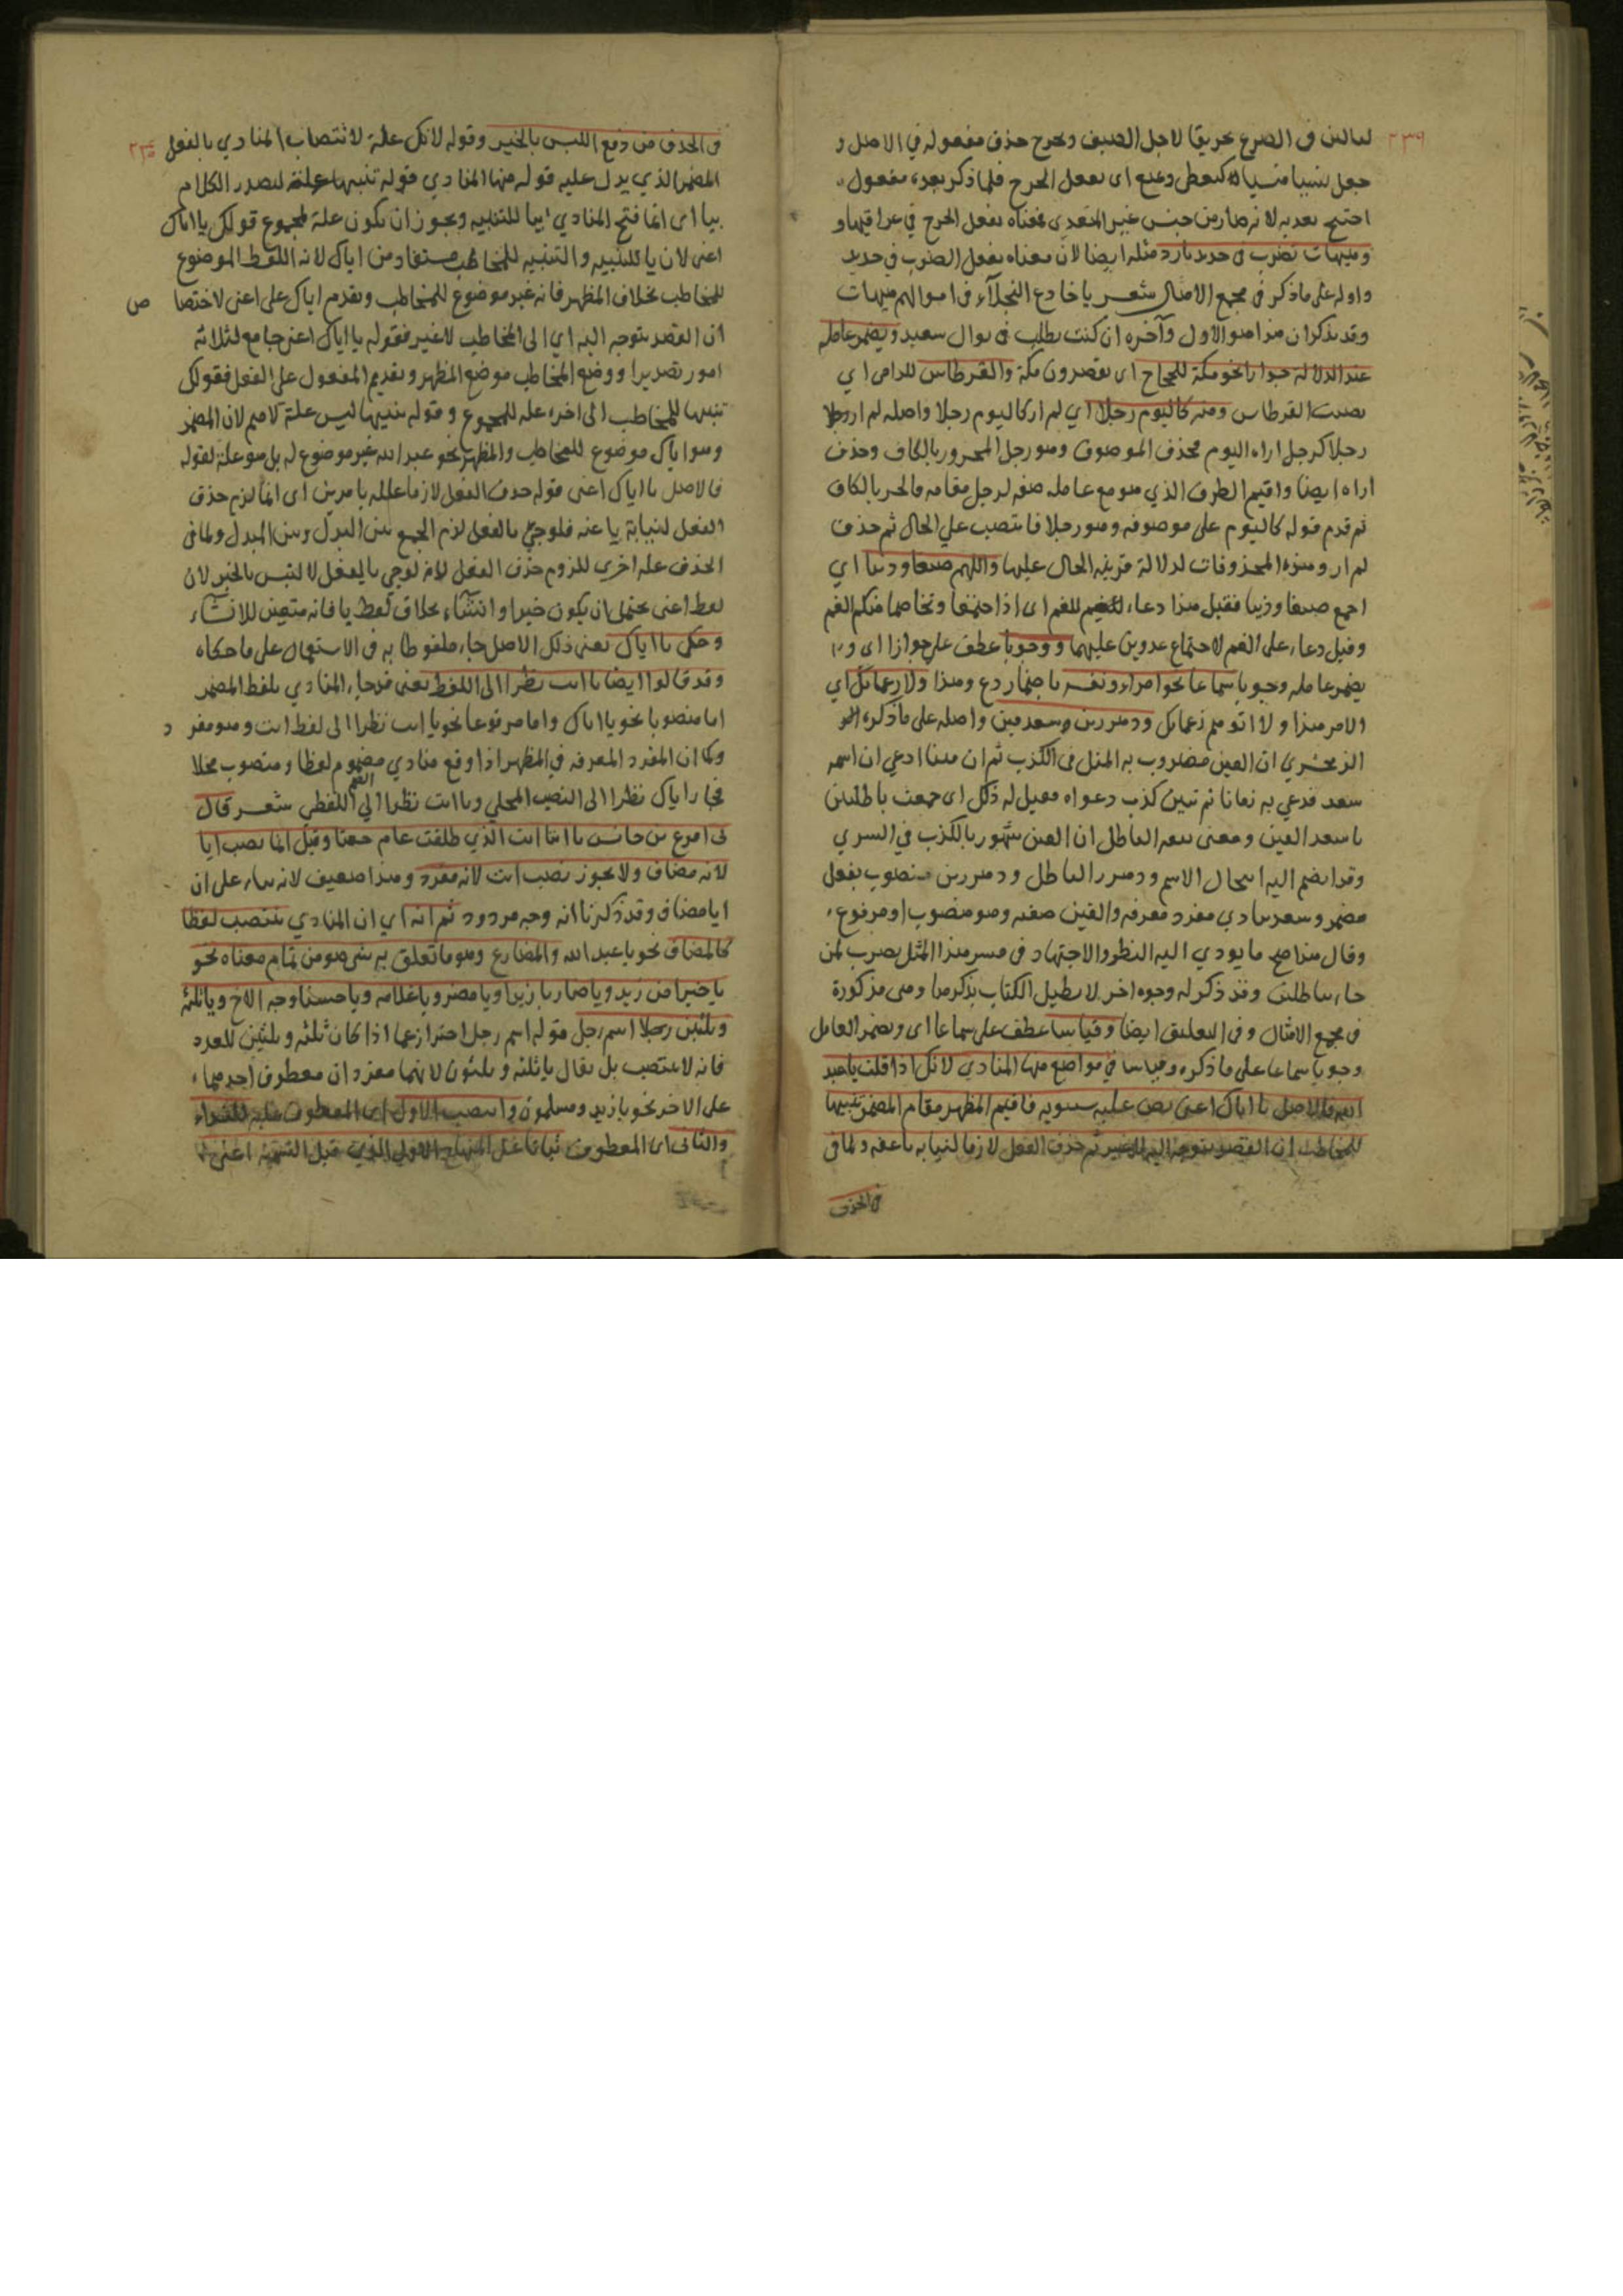 لبالبن في الضرع تحريقا لاجل الضيف ويجرح حذف مفعوله في الاصل و
جعل نسيا منسيا كيعطي ويمنع اى يفعل الجرح فلما ذكر بعده مفعول
احتيج تعديه لانه صار من جنس غير المتعدى فمعناه يفعل الجرح في عراقيبها و
وهيهات تضرب في حديد بارد مثله ايضا لان معناه يفعل الضرب في حديد
واوله على ماذكر في مجمع الامثال شعر يا خادع البخلاء في اموالهم هيهات
وقد يذكر ان هذا هو الاول وآخره ان كنت تطلب في نوال سعيد ويضمر عامله
عند الدلالة جوازا نحو مكة للحاج اى تقصدون مكة والقرطاس للرامى اي
تصيب القرطاس ومنه كاليوم رجلا اي لم ار كاليوم رجلا واصله لم ار رجلا
رجلا كرجل اراه اليوم فحذف الموصوف وهو رجل المجرور بالكاف وحذف
اراه ايضا واقيم الظرف الذي هو مع عامله صفة لرجل مقامه فانجر بالكاف
ثم قدم قوله كاليوم على موصوفه وهو رجلا فانتصب على الحال ثم حذف
لم ار وهذه المحذوفات لدلالة قرينة الحال عليها واللهم ضبعا وذئبا اي
اجمع ضبعا وذئبا فقيل هذا دعاء للغنم اى اذا اجتمعا وتخاصما سلم الغنم
وقيل دعاء على الغنم لاجتماع عدوين عليهما ووجوبا عطف على جوازا اى و
يضمر عامله وجوبا سماعا نحو امراء ونفسه باضمار دع وهذا ولا زعماتك اي
الامر هذا ولا اتوهم زعماتك ودهدرين وسعد القين واصله على ماذكره
الزمخشري ان القين مضروب به المثل في الكذب ثم ان قينا ادعى ان اسمه
سعد فدعي به زمانا ثم تبين كذب دعواه فقيل له ذلك اى جمعت باطلين
يا سعد القين ومعنى سعد الباطل ان القين مشهور بالكذب في السرى
وقد ايضم اليه انتحال الاسم ودهدر الباطل ودهدرين منصوب بفعل
مضمر وسعد منادى مفرد معرفة والقين صفته وهو منصوب او مرفوع
وقال هذا صح ما يودي اليه النظر والاجتهاد في مسر هذا المثل يضرب لمن
جاء بباطلين وقد ذكر له وجوه اخر لا نطيل الكتاب بذكرها وهى مذكورة
في مجمع الامثال وفي التعليق ايضا وقياسا عطف على سماعا اى ويضمر العامل
وجوبا سماعا على ماذكره وقياسا في مواضع منها المنادي لانك اذا قلت يا عبد
الله فالاصل يا اياك اعنى نص عليه سيبويه فاقيم المظهر مقام المضمر تنبيها
للمخاطب ان القصد يتوجه اليه لا غير ثم حذف الفعل لازما لنيابة يا عنه ولما في
في الحذف
في الحذف من دفع اللبس بالخبر وقوله لانك علة لانتصاب المنادي بالفعل
المضمر الذي يدل عليه قوله منها المنادي قوله تنبيها علة لتصدر الكلام
بيا اى انما فتح المنادي ابيا للتنبيه ويجوز ان يكون علة لمجموع قولك يا اياك
اعنى لان يا للتنبيه والتنبيه للمخاطب مستفاد من اياك لانه اللفظ الموضوع
للمخاطب بخلاف المظهر فانه غير موضوع للمخاطب وتقدم اياك على اعنى لاختصا ص
ان القصد يتوجه اليه اي الى المخاطب لا غير فقوله يا اياك اعنى جامع لثلاثة
امور تصديرا ووضع المخاطب موضع المظهر وتقديم المفعول على الفعل فقولك
تنبيها للمخاطب الى اخره علة للمجموع وقوله تنبيها ليس علة لاقيم لان المضمر
وهو اياك موضوع للمخاطب والمظهر نحو عبد الله غير موضوع له بل هو علة لقوله
فالاصل يا اياك اعنى قوله حذف الفعل لازما علله بامرين اى انما لزم حذف
الفعل لنيابة يا عنه فلو جئ بالفعل لزم الجمع بين البدل وبين المبدل ولما في
الحذف علة اخرى للزوم حذف الفعل لانه لو جي بالفعل لالتبس بالخبر لان
لفظ اعنى يحتمل ان يكون خبرا وانشاء بخلاف لفظ يا فانه متعين للانشاء
وحكى يا اياك يعنى ذلك الاصل جاء ملفوظا به في الاستعمال على ما حكاه
وقد قالوا ايضا يا انت نظرا الى اللفظ يعنى قد جاء المنادي بلفظ المضمر
اما منصوبا نحو يا اياك واما مرفوعا نحو يا انت نظرا الى لفظ انت وهو مفر د
وكما ان المفرد المعرفة في المظهر اذا وقع منادي مضموم لفظا ومنصوب محلا
فجاز اياك نظرا الى النصب المحلي ويا انت نظرا الى الضم اللفظى شعر قال
لي اقرع بن حابس يا انتا انت الذي طلقت عام جعتا وقيل انما نصب ايا
لانه مضاف ولا يجوز نصب انت لانه مفرد وهذا ضعيف لانه بناء على ان
ايا مضاف وقد ذكرنا انه وجه مردود ثم انه اي ان المنادي ينتصب لفظا
كالمضاف نحو يا عبد الله والمضارع وهو ما تعلق به شى هو من تمام معناه نحو
يا خيرا من زيد ويا ضاربا زيدا ويا مضروبا غلامه ويا حسنا وجه الاخ ويا ثلثة
وثلثين رجلا اسم رجل قوله اسم رجل احترازعما اذا كان ثلثة وثلثين للعدد
فانه لا ينتصب بل يقال يا ثلثة وثلثون لانهما مفردان معطوف احدهما
على الاخر نحو يا زيد ومسلمون وانتصب الاول اى المعطوف عليه للنداء
والثانى اى المعطوف ثباتا على المنهاج الاول الذي قبل التسمية اعنى